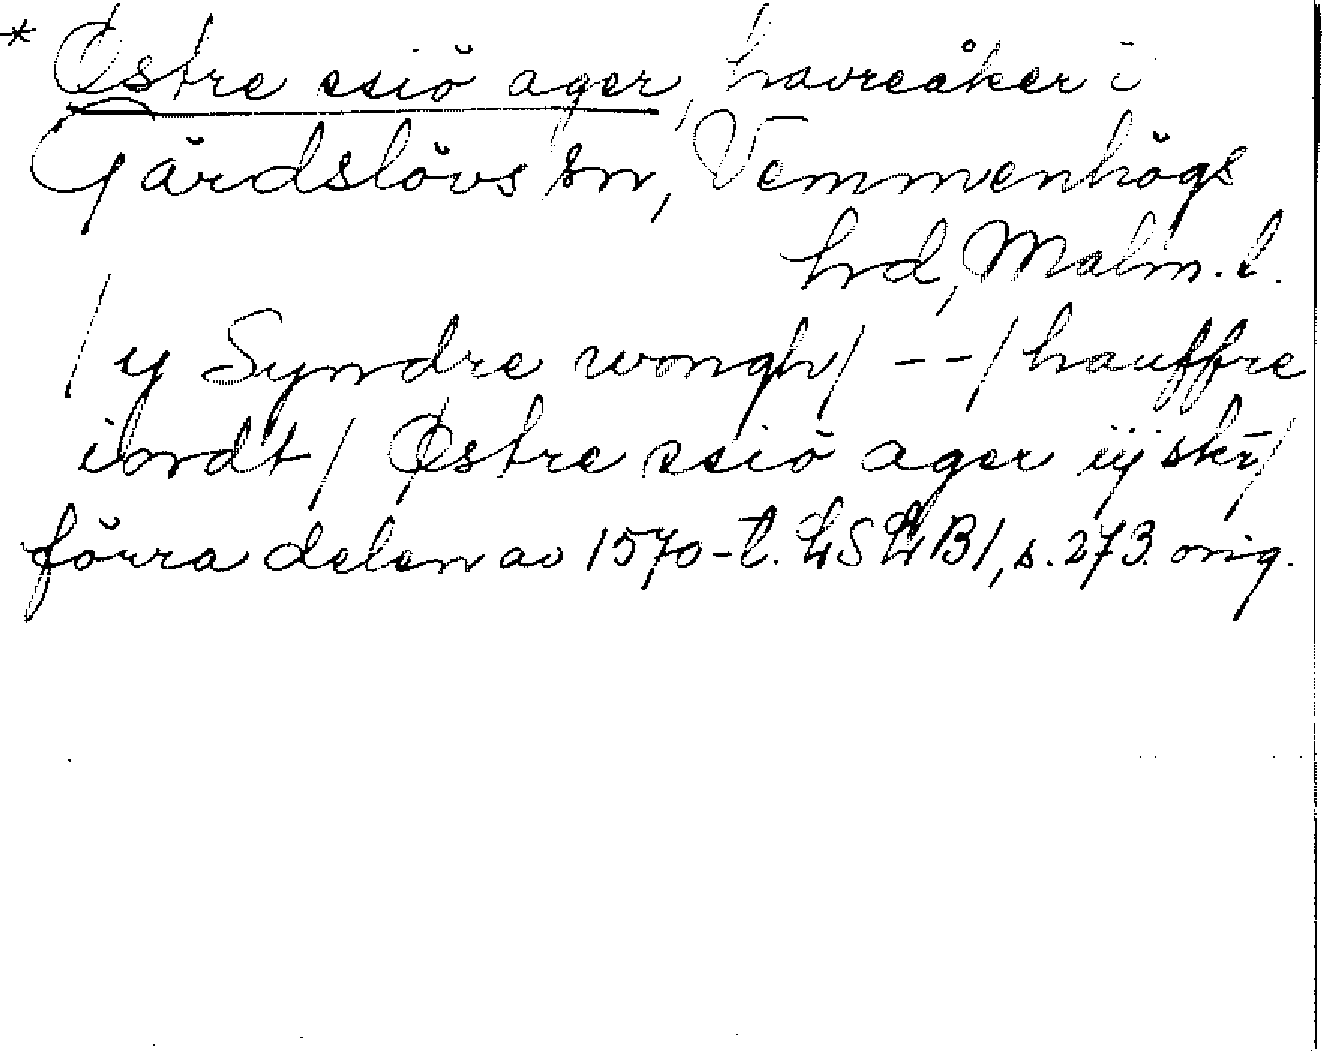 * Østre ssiö ager, havreåker i
Gärdslövs sn, Vemmenhögs
hrd, Malm. l.
/ y Syndre wongh/ -- / hauffre
iordt / Østre ssiö ager iij sk̄r/
förra delen av 1570-t. LSLB1, s. 273. orig.